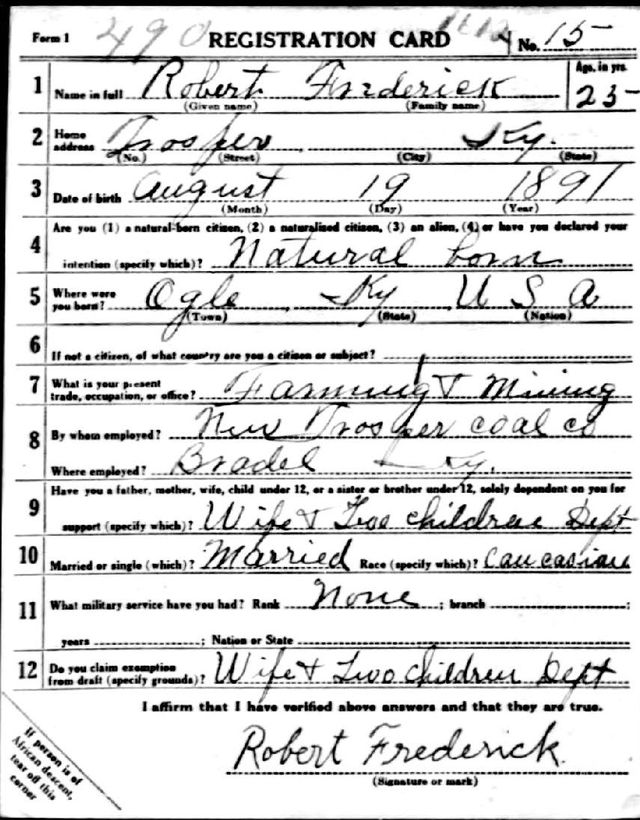 Form 1 490 REGISTRATION CARD No. 15
1 Name in full Robert Frederick Age, in yrs. 25
(Given name) (Family name)
2 Home address Trosper Ky.
(No.) (Street) (City) (State)
3 Date of birth August 19 1891
(Month) (Day) (Year)
4 Are you (1) a natural-born citizen, (2) a naturalized citizen, (3) an alien, (4) or have you declared your
intention (specify which)? Natural born
5 Where were you born? Ogle Ky U S A
(Town) (State) (Nation)
6 If not a citizen, of what country are you a citizen or subject?
7 What is your present trade, occupation, or office? Farming & Mining
8 By whom employed? New Trosper coal co
Where employed? Ky.
9 Have you a father, mother, wife, child under 12, or a sister or brother under 12, solely dependent on you for
support (specify which)? Wife & Two children Dept
10 Married or single (which)? Married Race (specify which)? Caucasian
11 What military service have you had? Rank None ; branch ;
years ; Nation or State
12 Do you claim exemption from draft (specify grounds)? Wife & Two children Dept
I affirm that I have verified above answers and that they are true.
Robert Frederick
(Signature or mark)
If person is of
African descent,
tear off this
corner